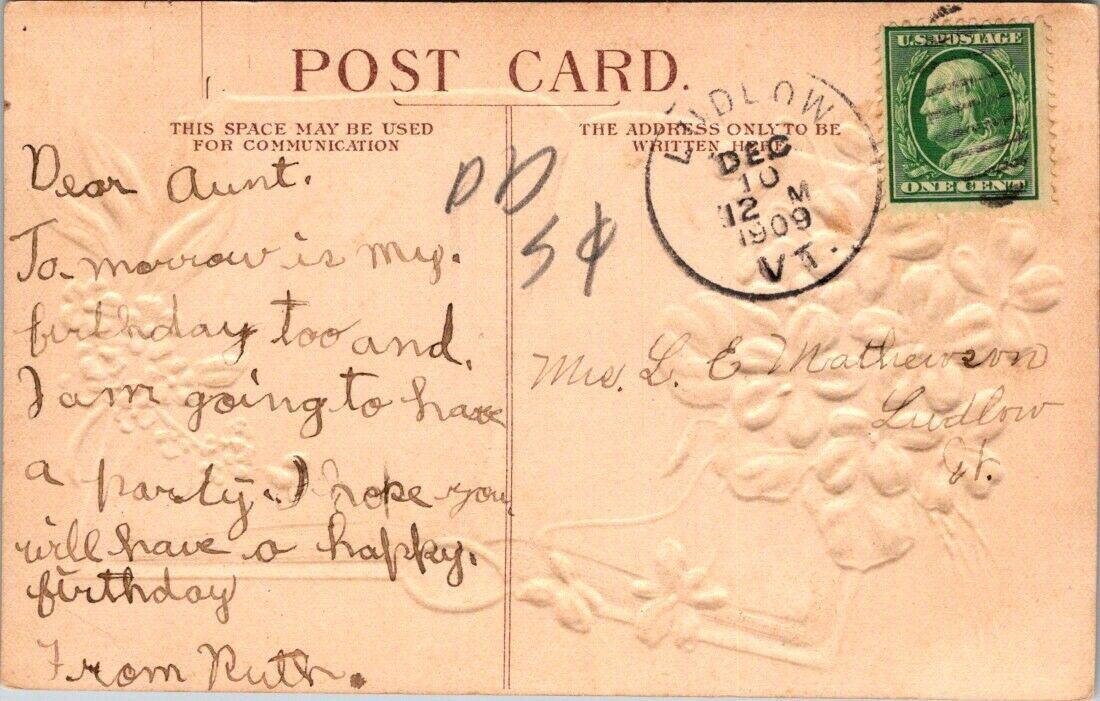 POST CARD.
THIS SPACE MAY BE USED
FOR COMMUNICATION
THE ADDRESS ONLY TO BE
WRITTEN HERE.
U.S. POSTAGE
ONE CENT
LUDLOW
DEC
10
12 M
1909
VT.
DD
5¢
Dear Aunt.
To-morrow is my.
birthday too and.
I am going to have
a party. I hope you
will have a happy.
birthday
From Ruth.
Mrs. L. E. Mathewson
Ludlow
Vt.